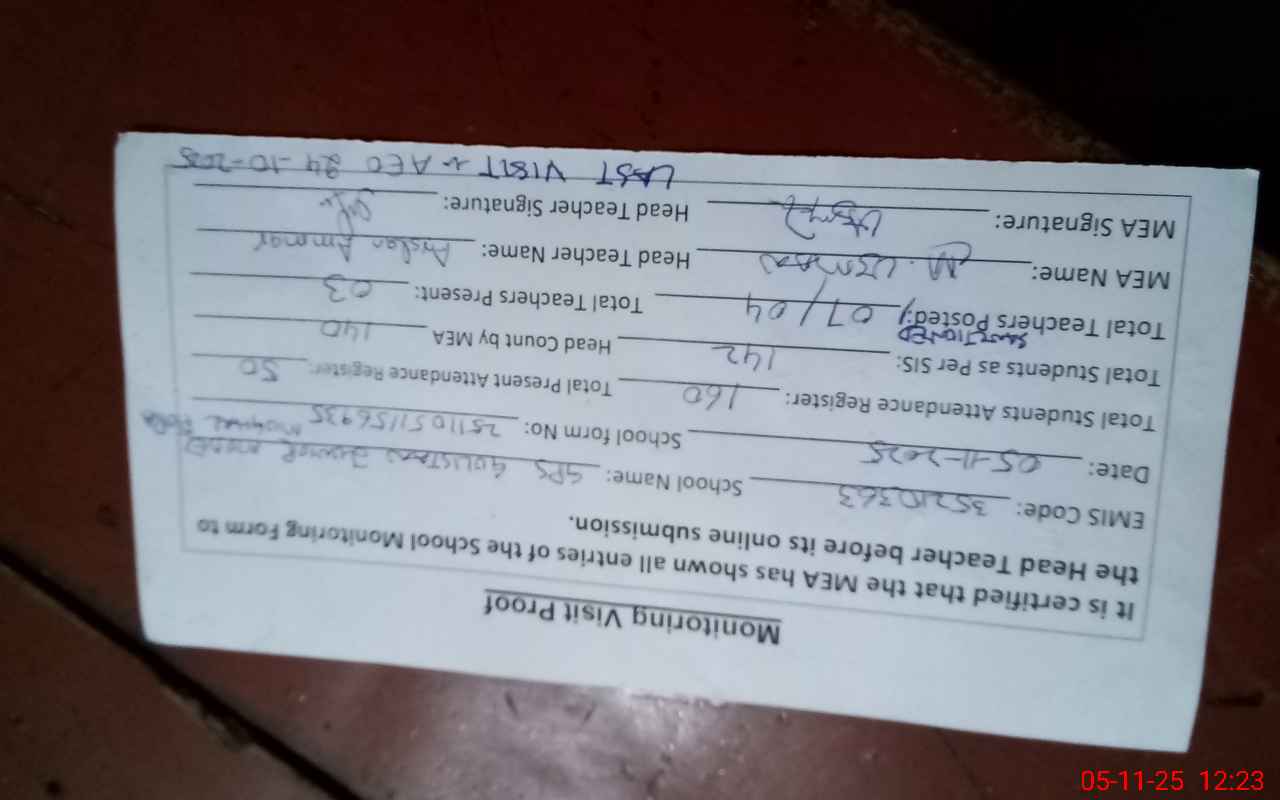 Monitoring Visit Proof
It is certified that the MEA has shown all entries of the School Monitoring Form to
the Head Teacher before its online submission.
EMIS Code: 35210363 School Name: GPS GULISTAN
Date: 05-11-2025 School form No: 2511051156935
Total Students Attendance Register: 160 Total Present Attendant Register: 50
Total Students as Per SIS: 142 Head Count by MEA 140
SANCTIONED
Total Teachers Posted: 07/04 Total Teachers Present: 03
MEA Name: M. USMAN Head Teacher Name: Arslan Ammar
MEA Signature: Head Teacher Signature:
LAST VISIT AEO 24-10-2025
05-11-25 12:23